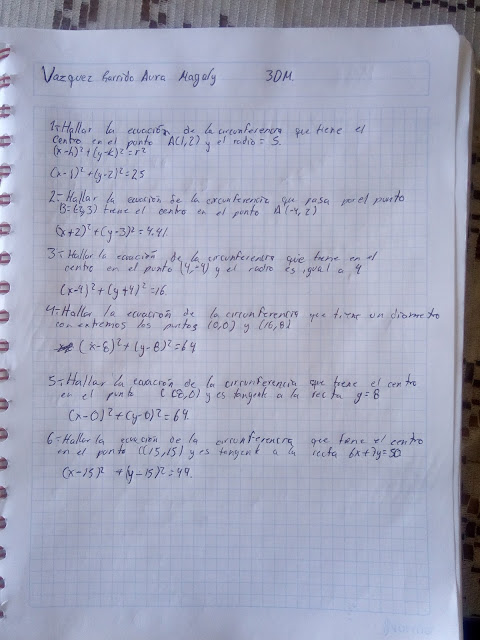 Vazquez Garrido Aura Magaly 3DM.
1-Hallar la ecuación de la circunferencia que tiene el
centro en el punto A(1,2) y el radio = 5.
(x-h)²+(y-k)²=r²
(x-1)²+(y-2)²=25
2-Hallar la ecuación de la circunferencia que pasa por el punto
B=(-2,3) tiene el centro en el punto A(-4,2)
(x+2)²+(y-3)²=4.41
3-Hallar la ecuación de la circunferencia que tiene en el
centro en el punto (4,-4) y el radio es igual a 4
(x-4)²+(y+4)²=16
4-Hallar la ecuación de la circunferencia que tiene un diametro
con extremos los puntos (0,0) y (16,8)
(x-8)²+(y-8)²=64
5-Hallar la ecuación de la circunferencia que tiene el centro
en el punto C(0,0) y es tangente a la recta y=8
(x-0)²+(y-0)²=64
6-Hallar la ecuación de la circunferencia que tiene el centro
en el punto C(15,15) y es tangente a la recta 6x+7y=50
(x-15)² +(y-15)²=44.